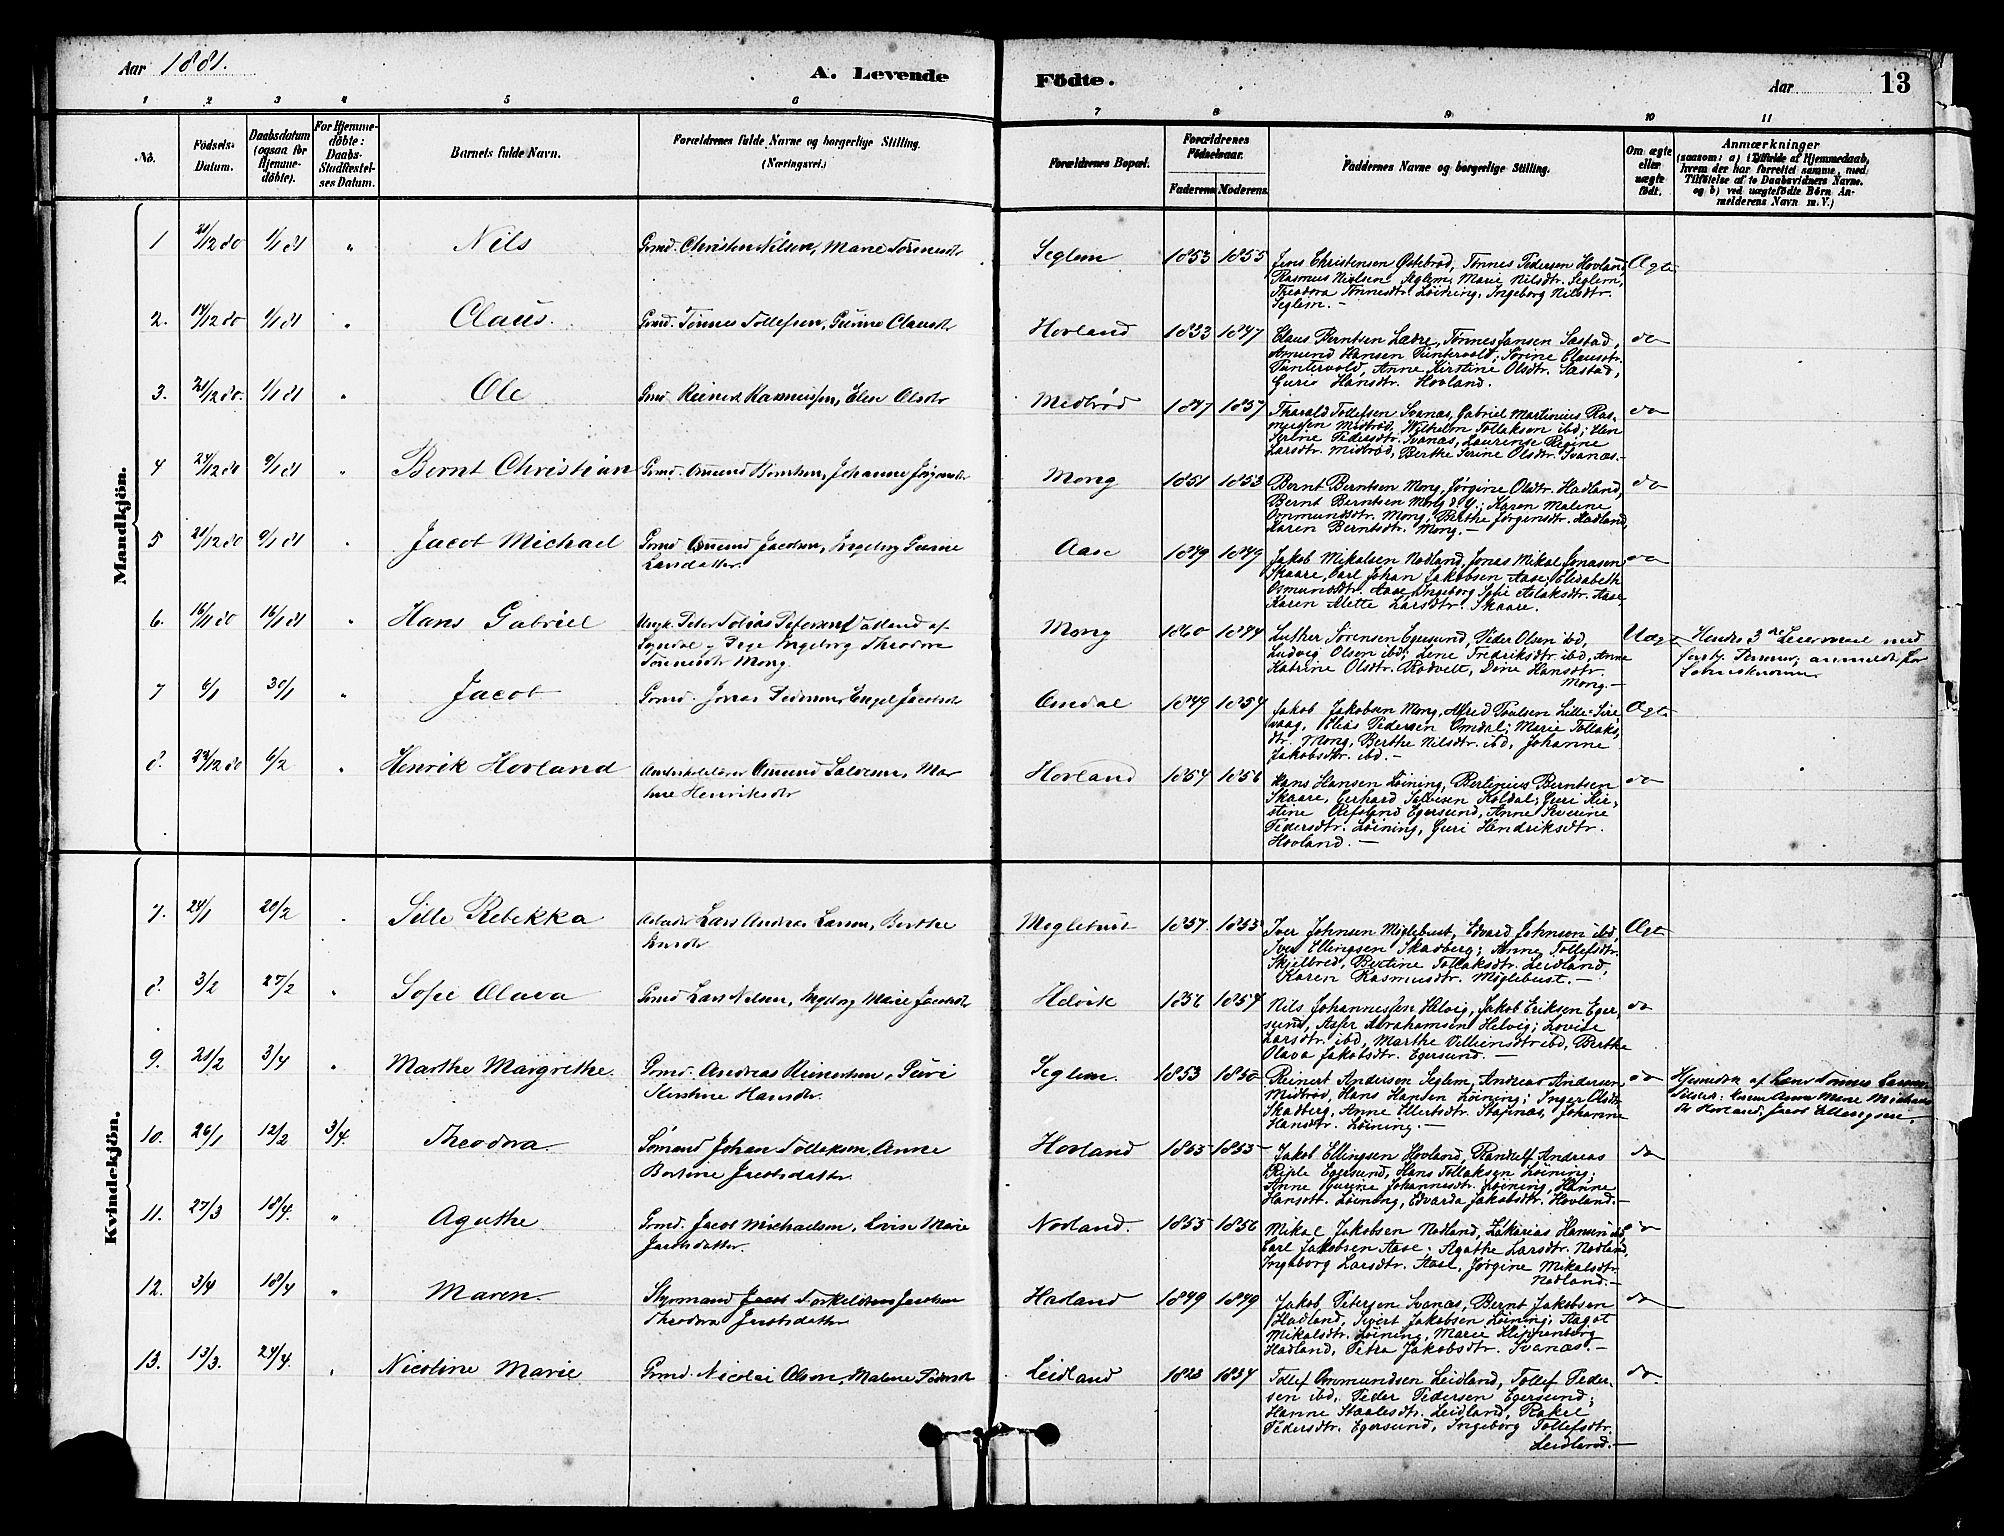 Aar 1881.
A. Levende
Födte.
Aar
13
1 2 3 4 5 6 7 8 9 10 11
No.
Födsels-
Datum.
Daabsdatum
(ogsaa for
Hjemme-
döbte).
For Hjemme-
döbte:
Daabs-
Stadfæstel-
ses Datum.
Barnets fulde Navn.
Forældrenes fulde Navne og borgerlige Stilling.
(Næringsvei.)
Forældrenes Bopæl.
Forældrenes
Födselsaar.
Faderens. Moderens.
Faddernes Navne og borgerlige Stilling.
Om ægte
eller
uægte
födt.
Anmærkninger
(saasom: a) i Tilfælde af Hjemmedaab,
hvem der har forrettet samme, med
Tilföielse af to Daabsvidners Navne.
og b) ved uægtefödte Börn An-
melderens Navn m. V.)
Mandkjön.
1 21/12 80 1/1 81 " Nils
Grmd. Christen Nilsen, Marie Tønnesdtr
Seglem 1853 1855
Jens Christensen Østebrød, Tønnes Pedersen Hovland,
Rasmus Nielsen Seglem, Marie Nilsdtr. Seglem,
Theodora Tønnesdtr. Løining, Ingeborg Nilsdtr.
Seglem. —
Ægte
2. 14/12 80 1/1 81 " Claus.
Grmd. Tønnes Tollefsen, Gunne Clausdtr
Hovland 1833 1847
Claus Berntsen Lædre, Tønnes Jansen Sæstad,
Amund Hansen Puntervold; Sørine Clausdtr.
Puntervold, Anne Kirstine Olsdtr. Sæstad,
Gurie Hansdtr. Hovland.
do
3. 21/12 80. 1/1 81 " Ole
Grmd. Reinert Rasmussen, Elise Olsdtr
Medbrød 1847 1857
Tharald Tollefsen Svanæs, Gabriel Martinius Ras-
mussen Midbrød, Wilhelm Tollaksen ibd; Elen
Serine Pedersdtr. Svanæs, Laurense Regine
Larsdtr. Midbrød, Berthe Serine Olsdtr. Svanæs.—
do
4 24/12 80 9/1 81 " Bernt Christian
Grmd. Omund Berntsen, Johanne Jørgensdtr
Mong 1851 1853
Bernt Berntsen Mong, Jørgine Olsdtr. Hadland,
Bernt Berntsen Mong d. y.; Karen Malene
Ommundsdtr. Mong, Berthe Jørgensdtr. Hadland,
Karen Berntsdtr. Mong. —
do
5 21/12 80 9/1 81 " Jacob Michael
Grmd Omund Jacobsen, Ingeborg Gurine
Larsdatter.
Aase 1849 1849
Jakob Mikalsen Nodland, Jonas Mikal Jonasen
Skaare, Carl Johan Jakobsen Aase; Elisabeth
Osmundsdtr. Aase, Ingeborg Sofie Aslaksdtr. Aase,
Karen Alette Larsdtr. Skaare.
do
6. 16/11 80 16/1 81 " Hans Gabriel
Ungk. Peder Tobias Petersen Vatland af
Sogndal og Pige Ingeborg Theodora
Tønnesdtr Mong.
Mong 1860 1844
Luther Sørensen Egersund, Peder Olsen ibd,
Ludvig Olsen ibd; Lene Fredriksdtr. ibd, Anne
Katrine Olsdtr. Rodvelt, Dine Hansdtr.
Mong. —
Uægte
Hendes 3die Leiermaal med
forskj. Personer; anmeldt for
7 6/1 30/1 " Jacob
Grmd. Jonas Pedersen, Engel Jacobsdtr
Omdal 1849 1854
Jakob Jakobsen Mong, Alfred Poulsen Lille-Sire-
vaag, Elias Pedersen Omdal; Marie Tollaks-
dtr. Mong, Berthe Nilsdtr. ibd, Johanne
Jakobsdtr. ibd. —
Ægte
8. 23/12 80 6/2 " Henrik Hovland
Omund Salvesen, Mar
ine Henriksdtr
Hovland 1854 1856
Hans Hansen Løining, Bertinius Berntsen
Skaare, Gerhard Salvesen Koldal; Guri Kir-
stine Refsland Egersund, Anne Severine
Pedersdtr. Løining, Guri Hendriksdtr.
Hovland. —
do
Kvindekjön.
7. 24/1 20/2 " Sille Rebekka
Lars Andreas Larsen, Berthe
Iversdtr
Meglebust 1857. 1855
Iver Johnsen Miglebust, Edvard Johnsen ibd,
Iver Ellingsen Skadberg; Anne Tollefsdtr.
Skjelbred, Bertine Tollaksdtr. Leidland,
Karen Rasmusdtr. Miglebust. —
Ægte
8. 3/2 27/2 " Sofie Olava
Grmd Lars Nilsen, Ingeborg Marie Jacobsdtr
Helvik 1856 1854
Nils Johannessen Helvig, Jakob Eriksen Eger-
sund, Asser Abrahamsen Helvig; Lovise
Larsdtr. ibd, Marthe Villumsdtr ibd, Berthe
Olava Jakobsdtr. Egersund. —
do
9. 21/2 3/4 " Marthe Margrethe.
Grmd. Andreas Reinertsen, Guri
Kirstine Hansdtr.
Seglem. 1853 1850
Reinert Andersen Seglem, Andreas Andersen
Midbrød, Hans Hansen Løining; Inger Olsdtr.
Skadberg, Anne Ellertsdtr. Stapnæs, Johanne
Hansdtr. Løining. —
do
Hjemmedøbt af Lars Tønnes Larsen
Anne Marie Michaels
dtr Hovland, Jacob Ellingsen.
10. 26/1 12/2 3/4. Theodora.
Sømand Johan Tollaksen, Anne
Bertine Jacobsdatter
Hovland 1855 1855
Jakob Ellingsen Hovland, Randulf Andreas
Riple Egersund, Hans Tollaksen Løining;
Anne Gurine Johannesdtr. Løining, Hanne
Hansdtr. Løining, Edvarda Jakobsdtr. Hovland.—
do
11. 27/3 18/4. " Agathe
Grmd. Jacob Michaelsen, Lovise Marie
Jacobsdatter.
Nodland. 1855 1856
Mikal Jakobsen Nodland, Zakarias Hansen ibd,
Carl Jakobsen Aase; Agathe Larsdtr. Nodland,
Ingeborg Larsdtr. Aase, Jørgine Mikalsdtr.
Nodland. —
do
12. 3/4 18/4 " Maren.
Styrmand Jacob Torkildsen Jacobsen
Theodora Jacobsdatter
Hadland 1849 1849
Jakob Petersen Svanæs, Bernt Jakobsen
Hadland, Sivert Jakobsen Løining; Aagot
Mikalsdtr. Løining, Marie Klippenberg
Hadland, Petra Jakobsdtr. Svanæs. —
do
13. 13/3. 24/4. " Nicoline Marie
Grmd. Nicolai Olsen, Malene Pedersdtr
Leidland 1823 1834
Tollef Ommundsen Leidland, Tollef Peder-
sen ibd, Peder Pedersen Egersund;
Hanne Staalesdtr. Leidland, Rakel
Pedersdtr. Egersund, Ingeborg Tollefsdtr.
Leidland. —
do.